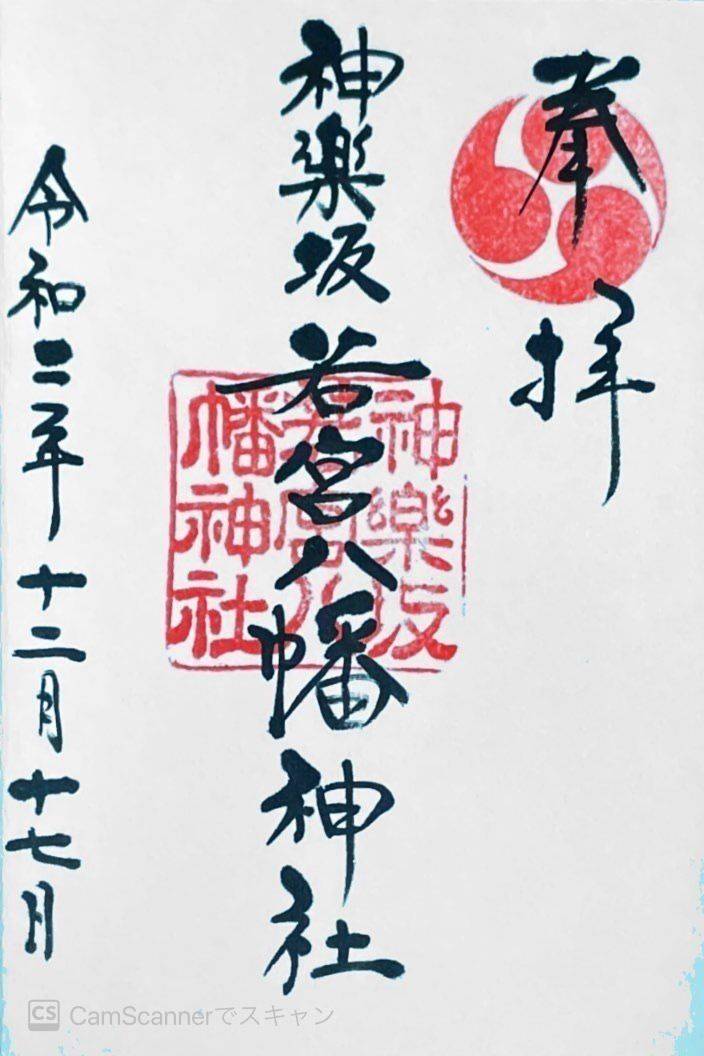 奉拝
神楽坂若宮八幡神社
神樂坂
若宮八
幡神社
令和二年十二月十七日
CS CamScannerでスキャン